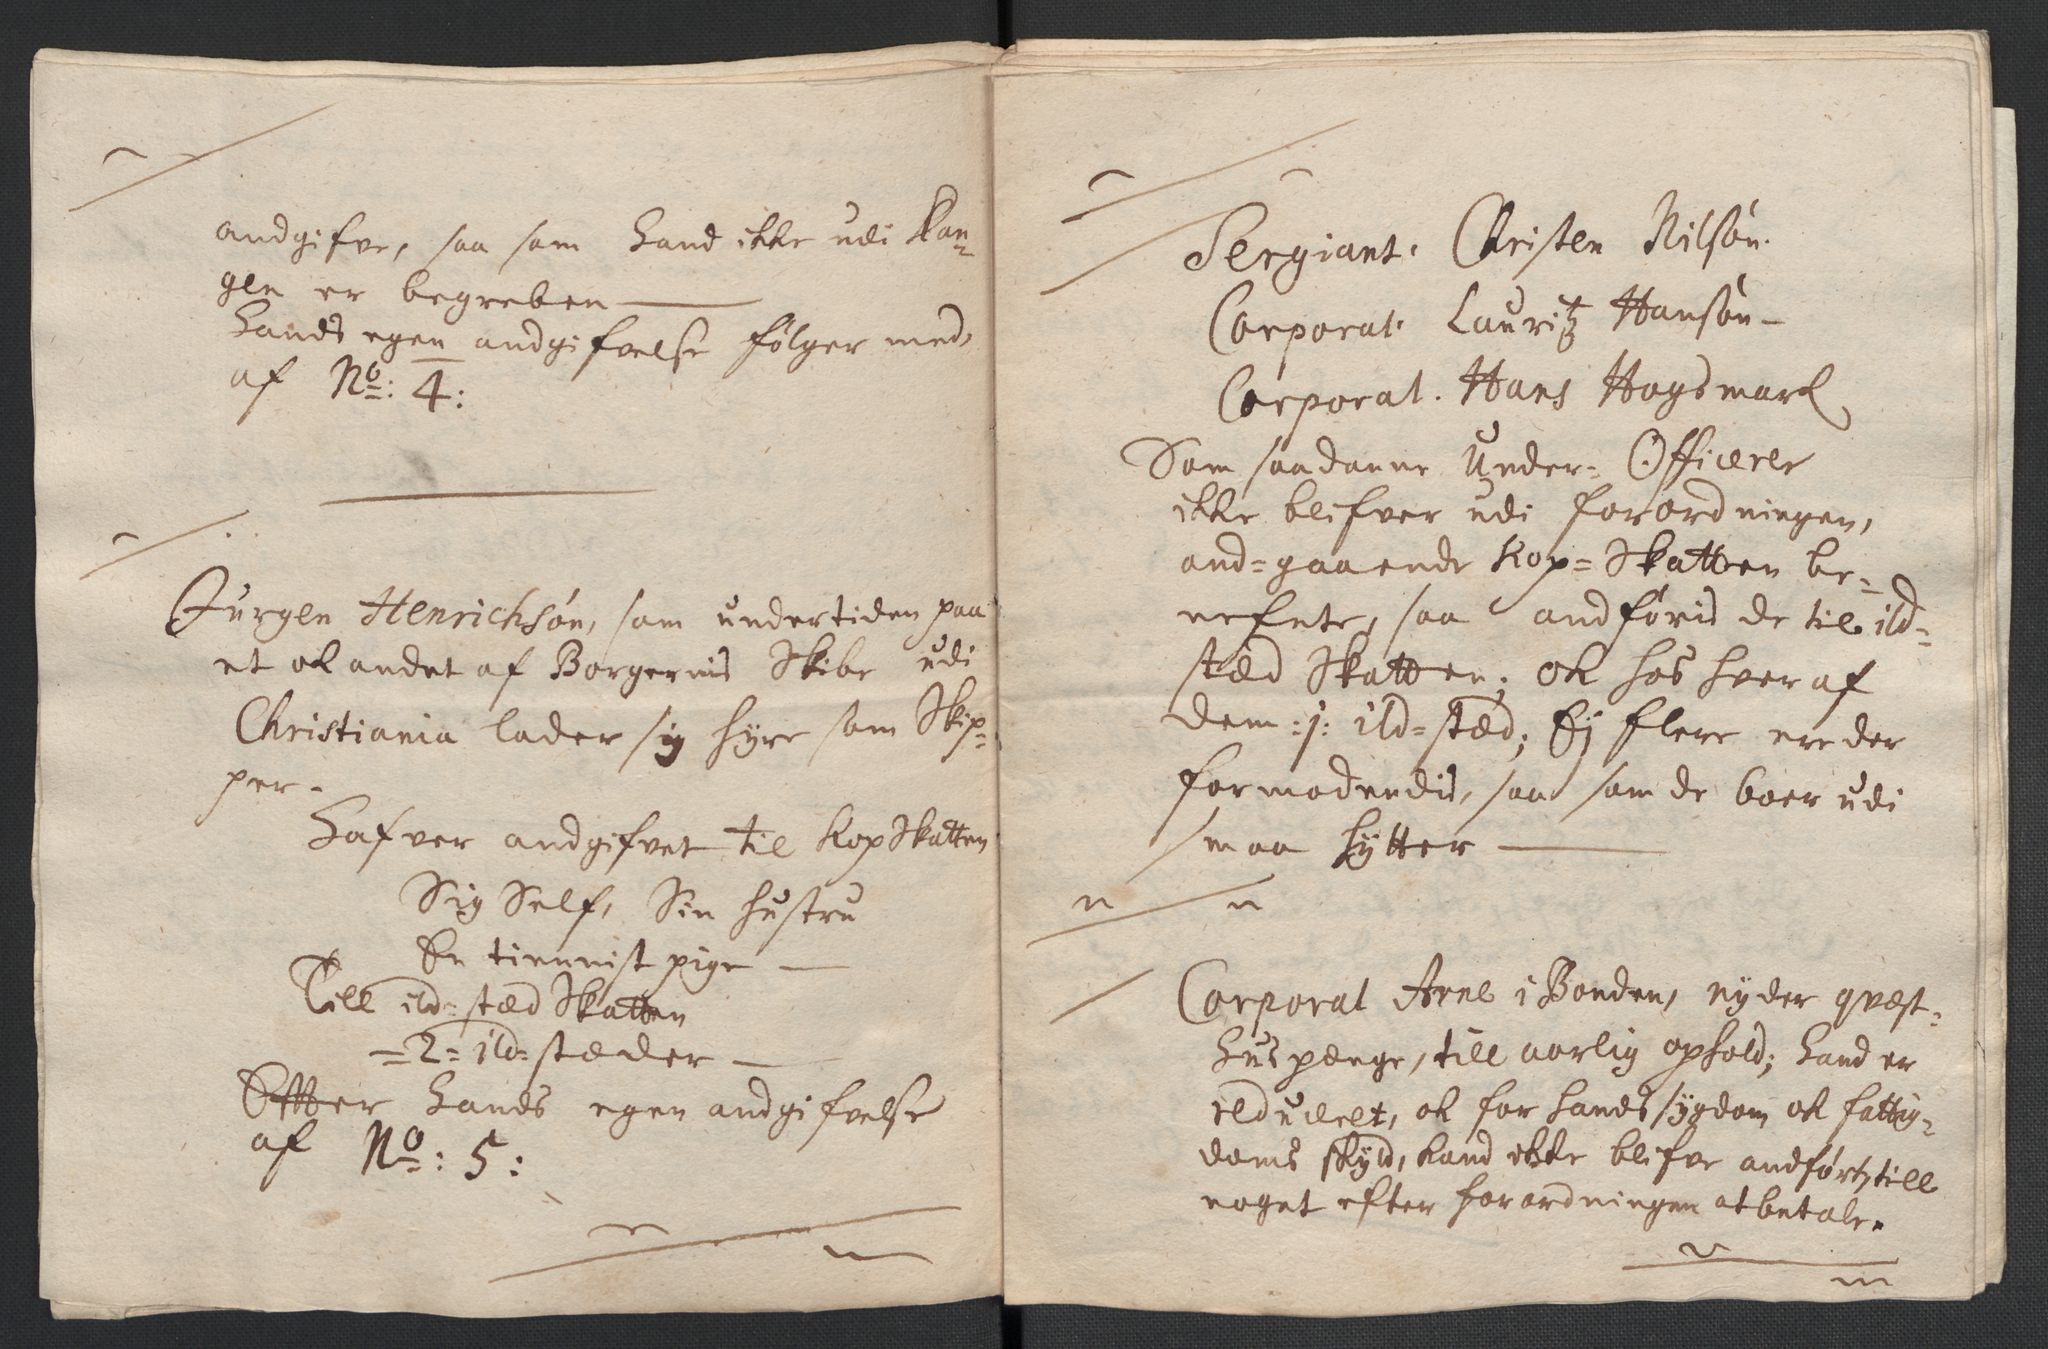 andgifve, saa som hand ikke udi Ran-
gen er begreben
hands egen andgifvelse følger med,
af No: 4:
Jurgen Henrichsøn, som undertiden paa
et ok andet af Borgernis Skibe udi
Christiania lader sig hyre som Skip-
per.
hafver andgifvet til KopSkatten
Sig Self, Sin hustru
En tiennist pige
Till ild-stæd Skatten
=2= ild-stæder
Efter hands egen andgifvelse
af No: 5:
Sergiant. Christen Nilsøn.
Corporal. Lauritz Hansøn
Corporal. Hans Hogsmark
Som saadanne Under-Officerer
ikke blifver udi forordningen,
and-gaaende Kop-Skatten be-
nefnte, saa andføris de til ild-
stæd Skatten; ok hos hver af
dem :1: ild-stæd; Ej flere ere der
formodendis, saa som de boer udi
smaa hytter
Corporal Arne i Bonden, nyder qvæst-
hus penge, till aarlig ophold; hand er
ok for hands sygdom ok fattig-
doms skyld, kand ikke blifve andført, till
noget efter forordningen at betale.